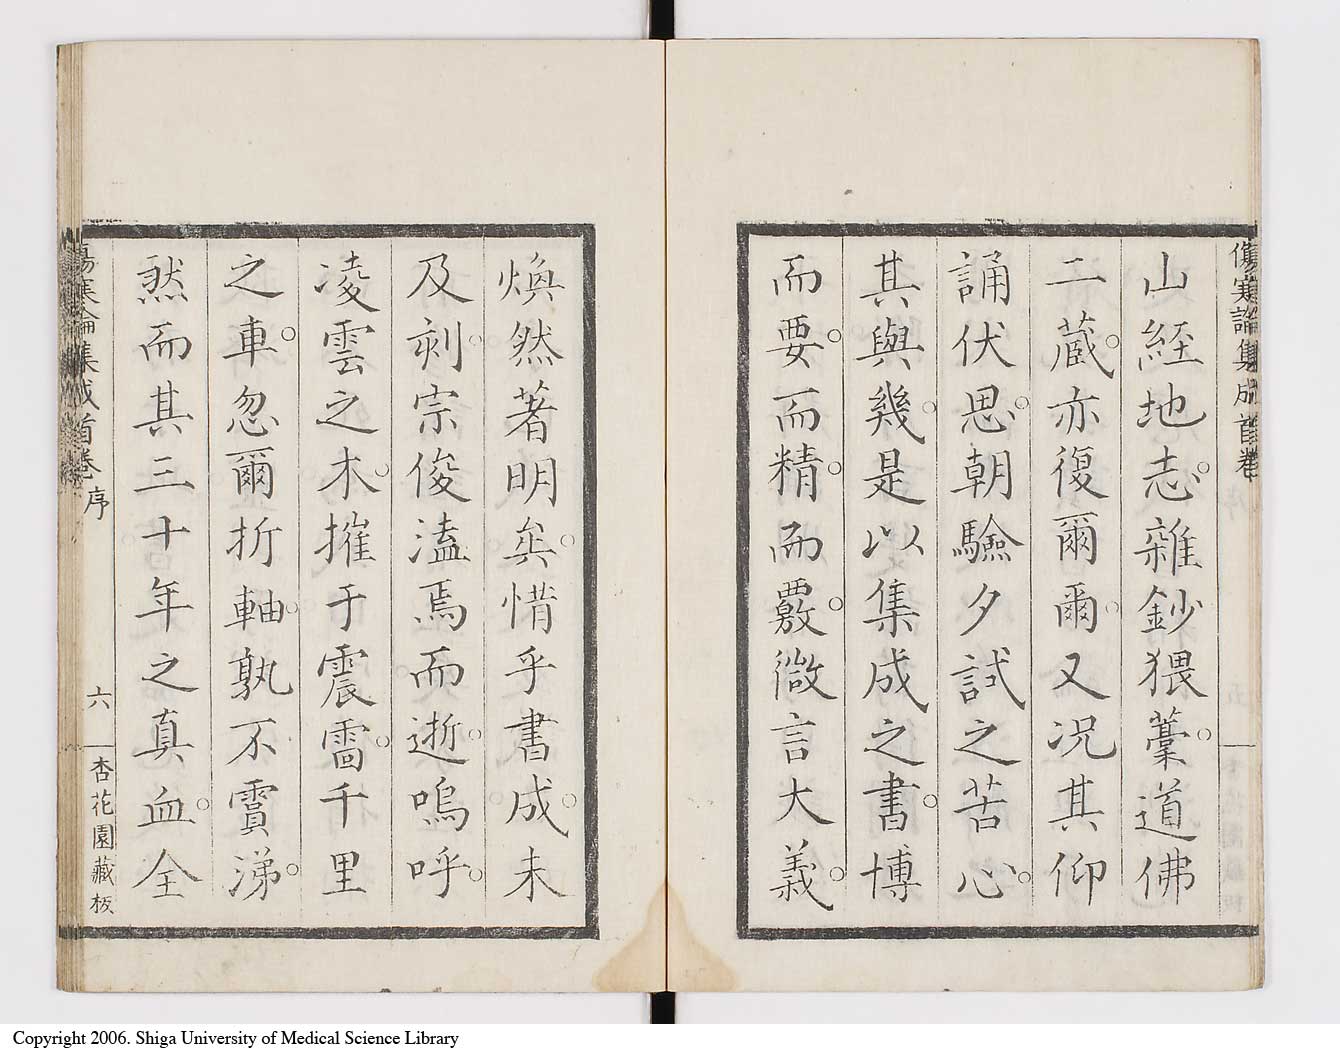 傷寒論集成首卷
山經地志雜鈔猥藁道佛
二藏亦復爾爾又況其仰
誦伏思朝驗夕試之苦心
其與幾是以集成之書博
而要而精而覈微言大義
煥然著明矣惜乎書成未
及刻宗俊溘焉而逝嗚呼
凌雲之木摧于震雷千里
之車忽爾折軸孰不實涕
然而其三十年之真血全
傷寒論集成首卷 序 六 杏花園藏板
Copyright 2006. Shiga University of Medical Science Library